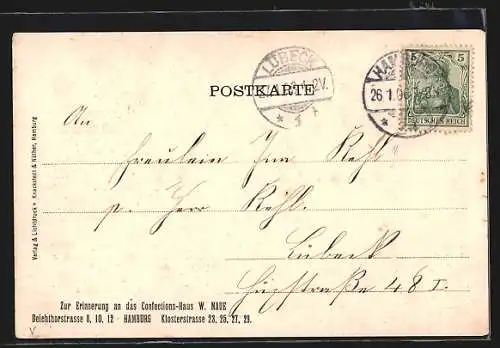 LÜBECK
2V.
HAMBURG
26.1.06
5 5
DEUTSCHES REICH
POSTKARTE
An
Fräulein Kehl
p. Herr Kehl.
Lübeck
Hüxstraße 48 I.
Verlag & Lichtdruck v. Knackstedt & Näther, Hamburg
Zur Erinnerung an das Confections-Haus W. MAUK
Deichthorstrasse 8, 10, 12 · HAMBURG Klosterstrasse 23, 25, 27, 29.